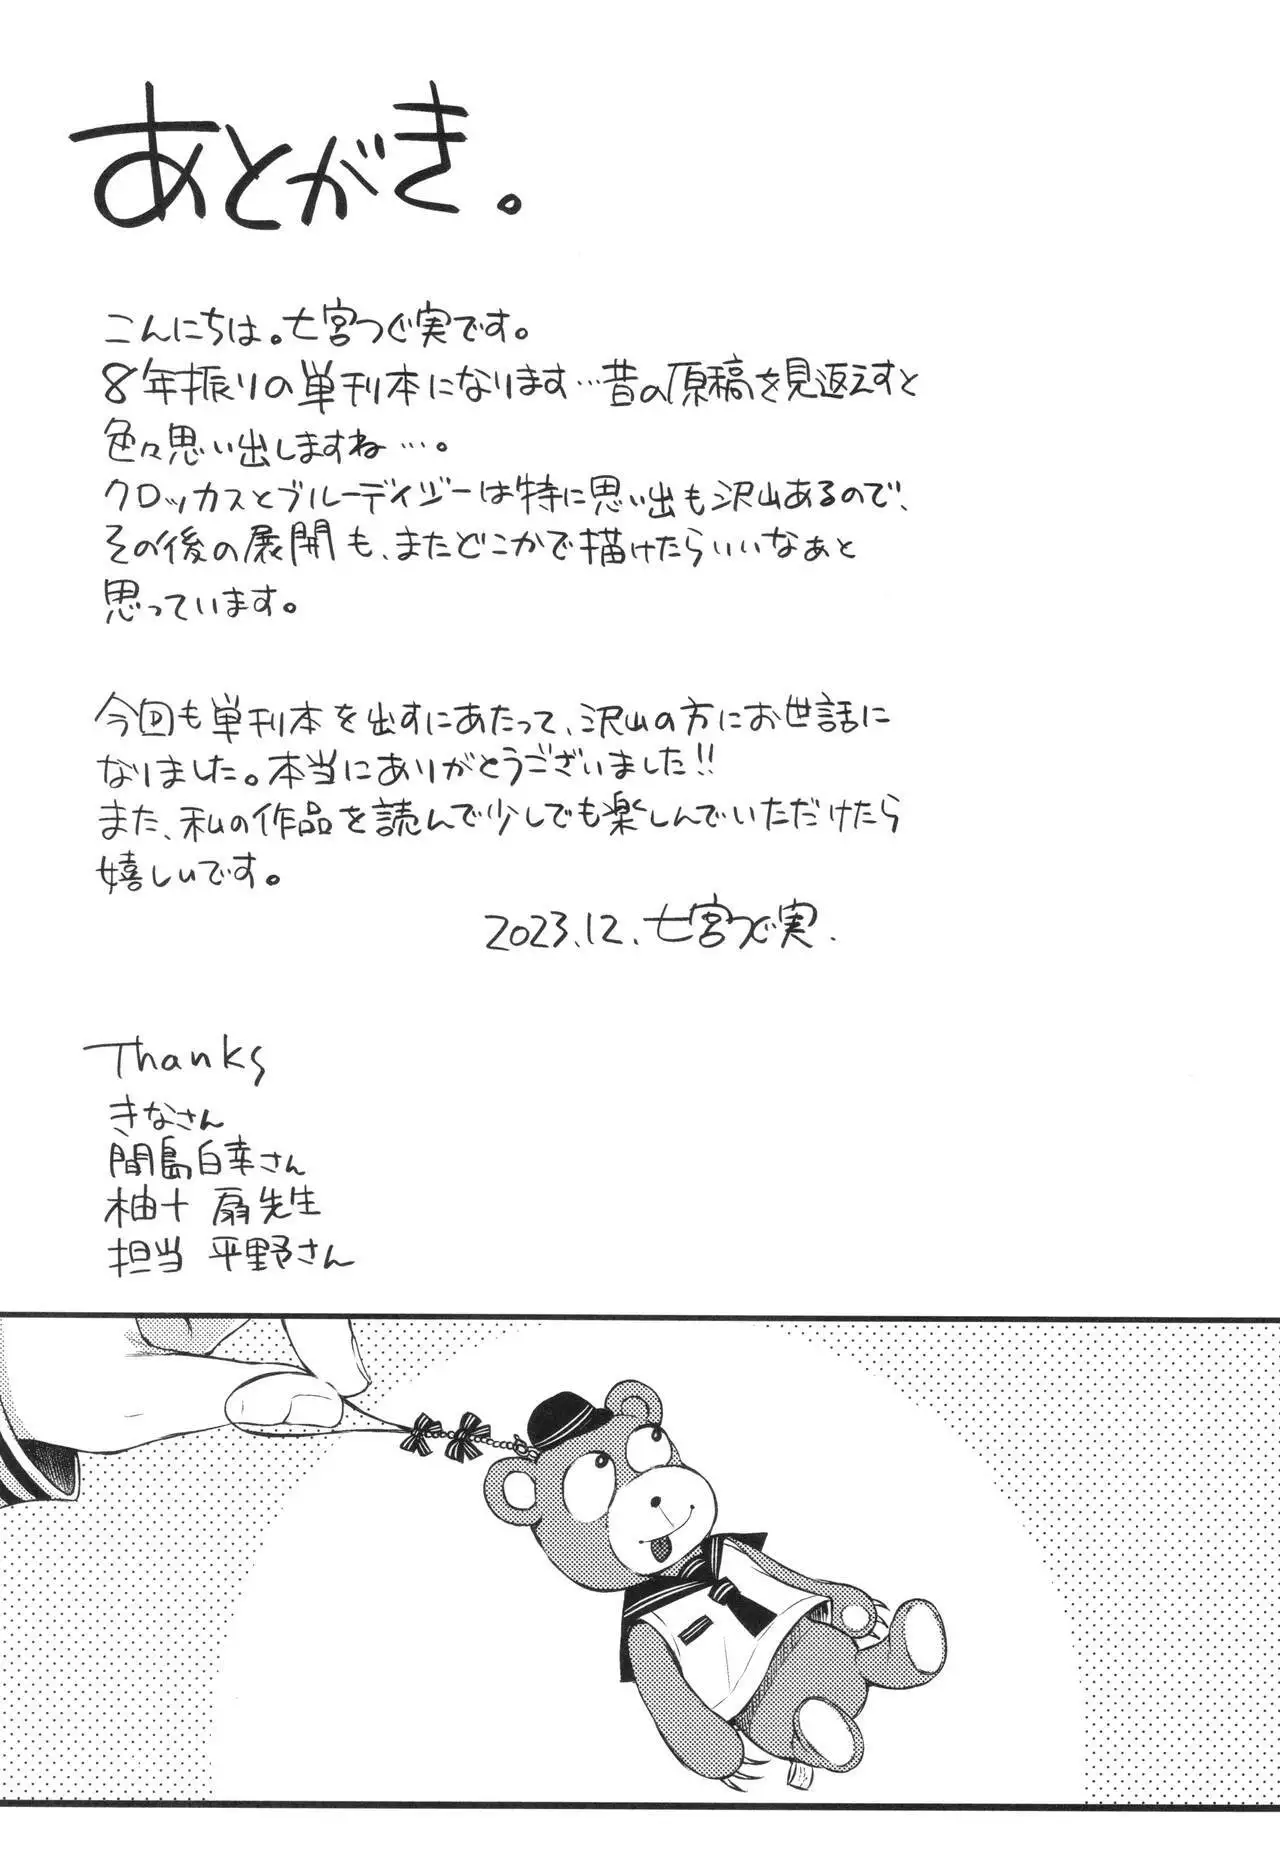 あとがき。
こんにちは。七宮つぐ実です。
8年振りの単刊本になります…昔の原稿を見返えすと
色々思い出しますね…。
クロッカスとブルーデイジーは特に思い出も沢山あるので、
その後の展開も、またどこかで描けたらいいなぁと
思っています。
今回も単刊本を出すにあたって、沢山の方にお世話に
なりました。本当にありがとうございました!!
また、私の作品を読んで少しでも楽しんでいただけたら
嬉しいです。
2023.12. 七宮つぐ実.
Thanks
きなさん
間島白幸さん
柚十 扇先生
担当 平野さん